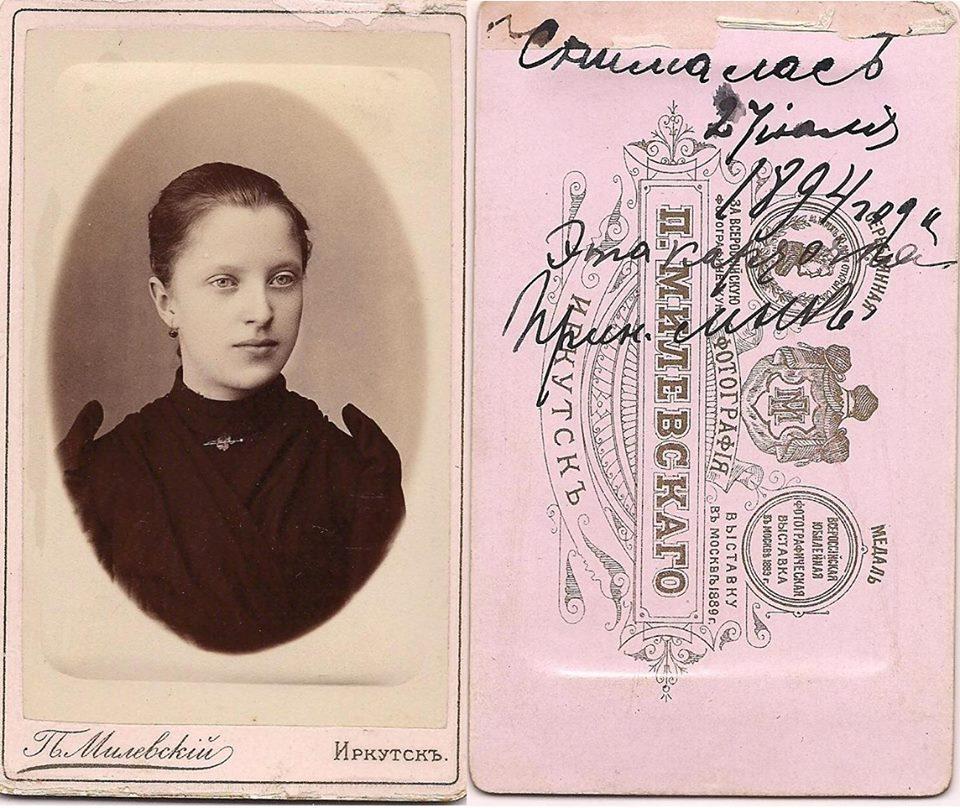 П. Милевскій
Иркутскъ.
Снималась
27 іюля
1894 года
Эта карточка
Прин.
ИРКУТСКЪ
П. МИЛЕВСКАГО
ФОТОГРАФІЯ
ЗА ВСЕРОССІЙСКУЮ
ВЫСТАВКУ
ВЪ МОСКВѢ 1889 г.
МЕДАЛЬ
ВСЕРОССІЙСКАЯ
ЮБИЛЕЙНАЯ
ФОТОГРАФИЧЕСКАЯ
ВЫСТАВКА
ВЪ МОСКВѢ 1889 г.